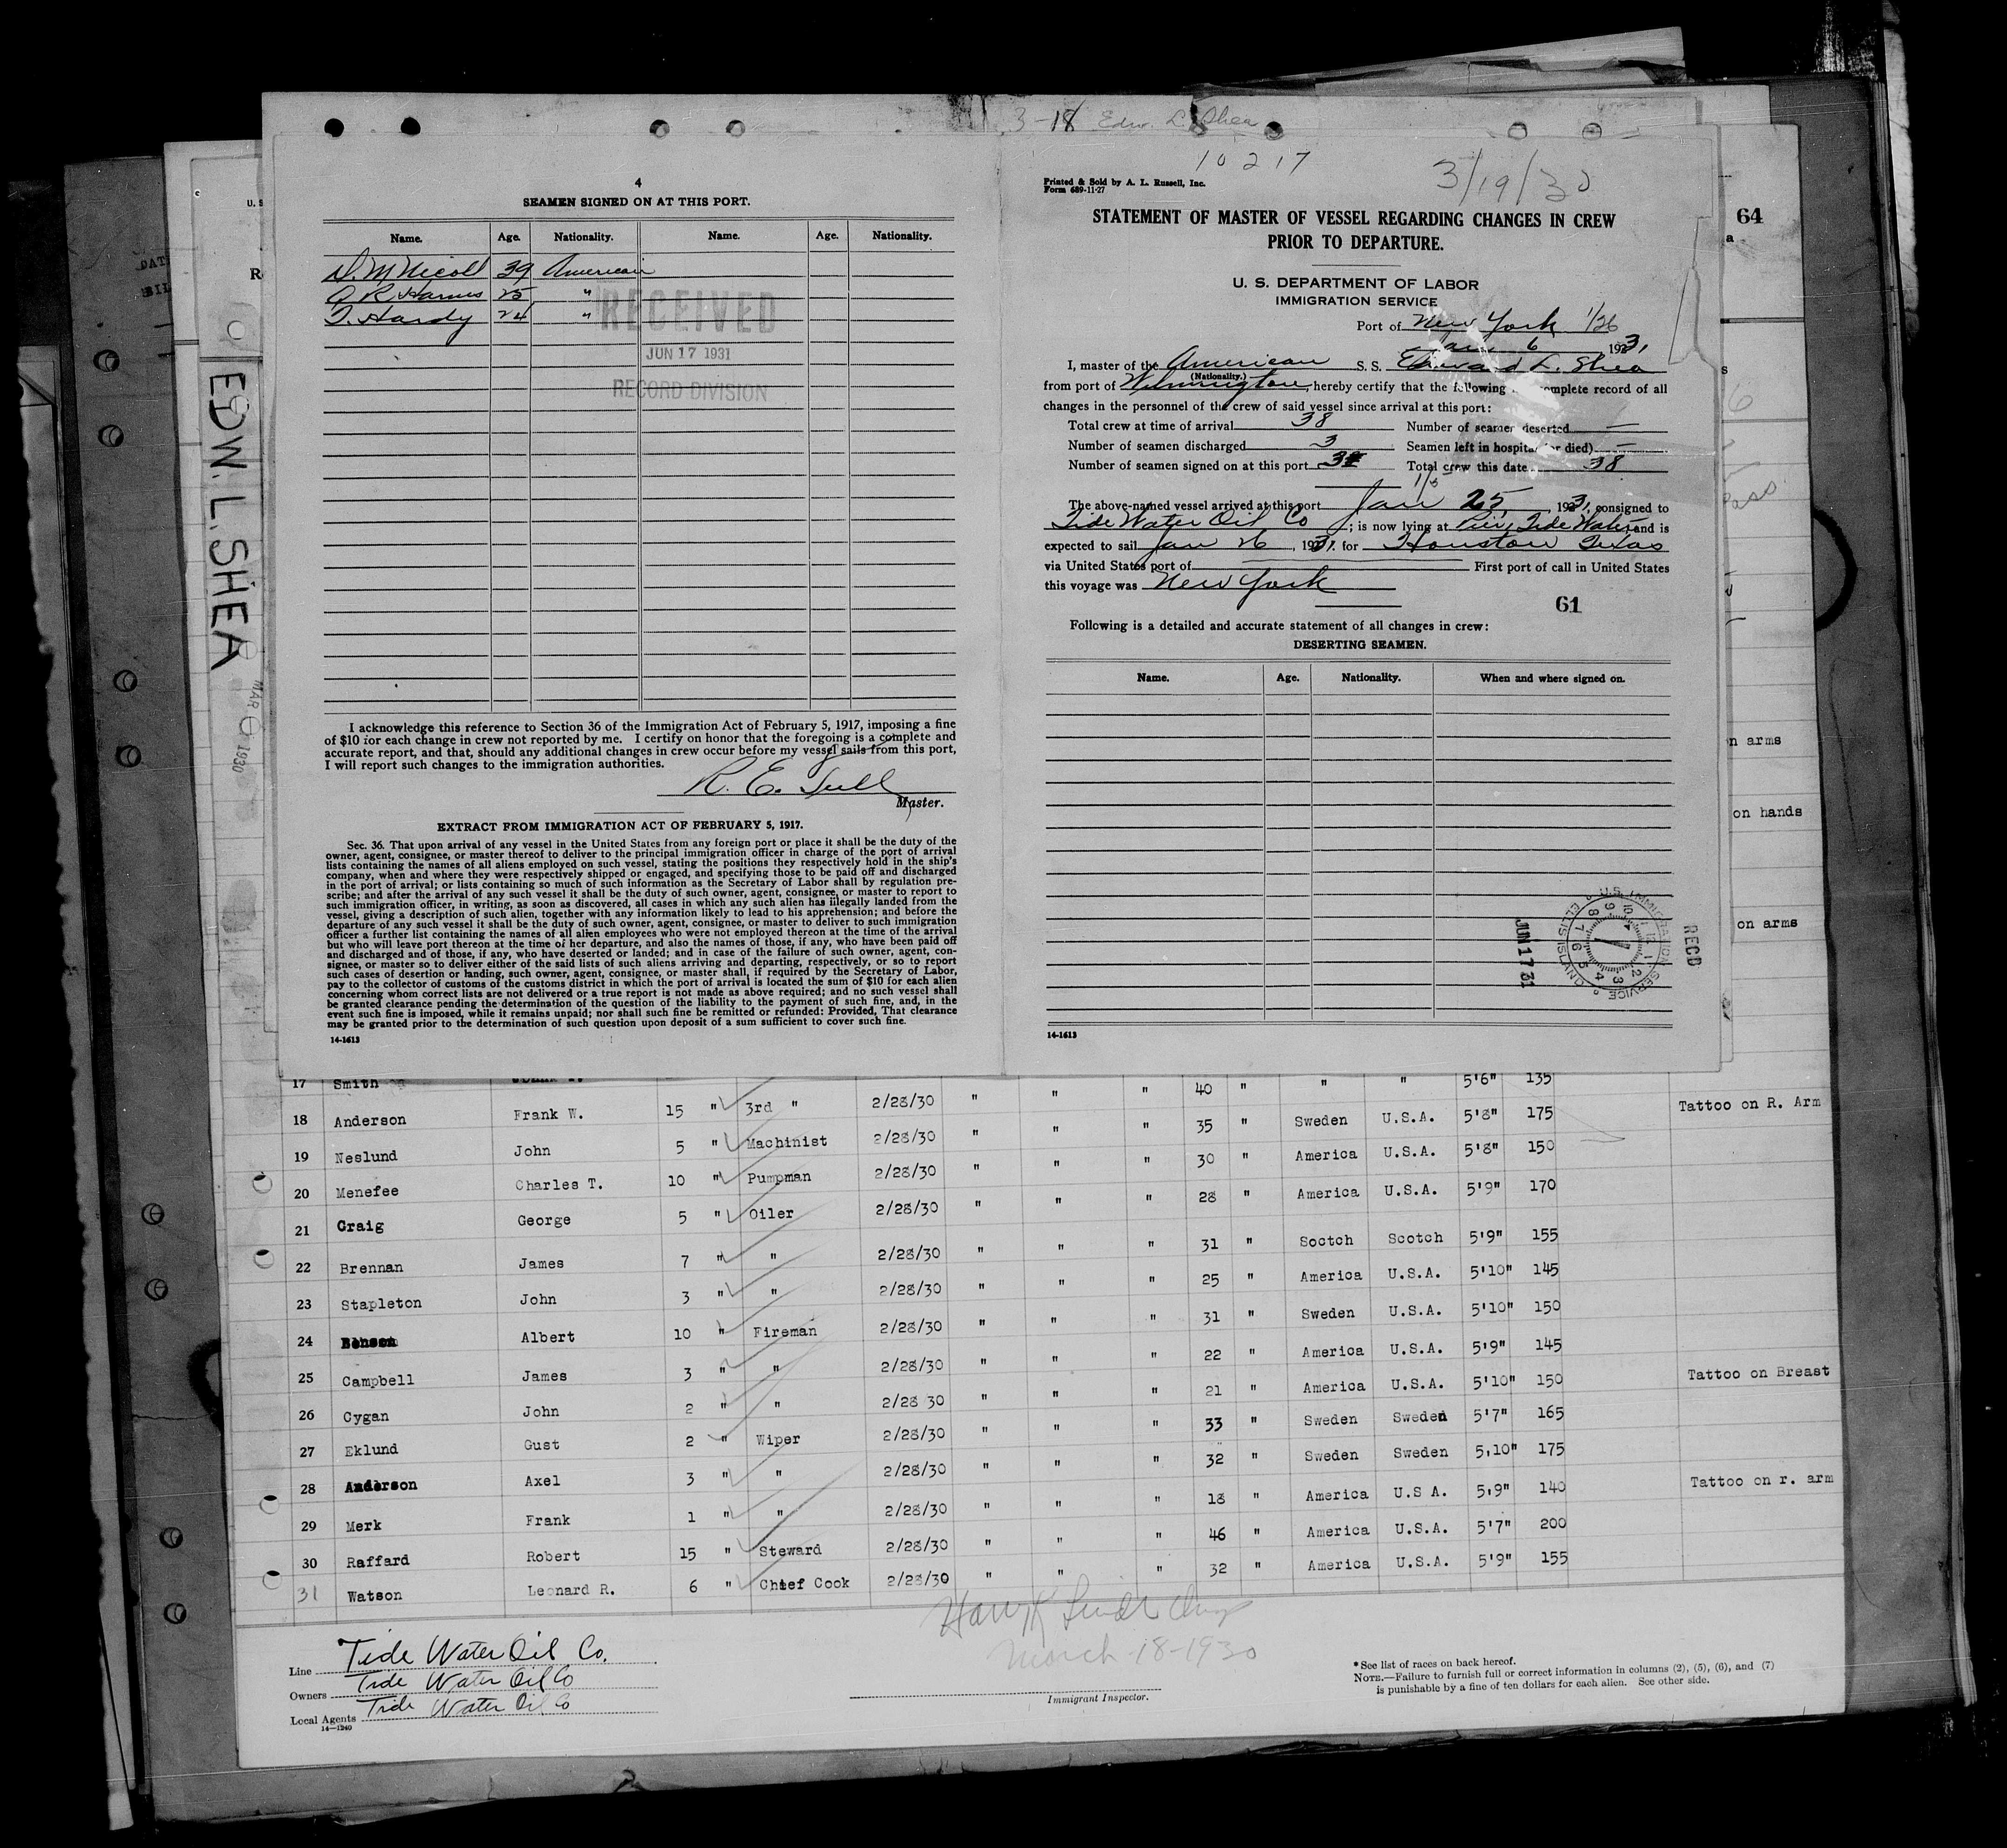 3-18 Edw. L. Shea
10217
3/19/30
4
SEAMEN SIGNED ON AT THIS PORT.
Name. Age. Nationality. Name. Age. Nationality.
D. M Nicoll 39 American
25 "
T. Hardy 24 "
RECEIVED
JUN 17 1931
RECORD DIVISION
I acknowledge this reference to Section 36 of the Immigration Act of February 5, 1917, imposing a fine
of $10 for each change in crew not reported by me. I certify on honor that the foregoing is a complete and
accurate report, and that, should any additional changes in crew occur before my vessel sails from this port,
I will report such changes to the immigration authorities.
R. E.
Master.
EXTRACT FROM IMMIGRATION ACT OF FEBRUARY 5, 1917.
Sec. 36. That upon arrival of any vessel in the United States from any foreign port or place it shall be the duty of the
owner, agent, consignee, or master thereof to deliver to the principal immigration officer in charge of the port of arrival
lists containing the names of all aliens employed on such vessel, stating the positions they respectively hold in the ship's
company, when and where they were respectively shipped or engaged, and specifying those to be paid off and discharged
in the port of arrival; or lists containing so much of such information as the Secretary of Labor shall by regulation pre-
scribe; and after the arrival of any such vessel it shall be the duty of such owner, agent, consignee, or master to report to
such immigration officer, in writing, as soon as discovered, all cases in which any such alien has illegally landed from the
vessel, giving a description of such alien, together with any information likely to lead to his apprehension; and before the
departure of any such vessel it shall be the duty of such owner, agent, consignee, or master to deliver to such immigration
officer a further list containing the names of all alien employees who were not employed thereon at the time of the arrival
but who will leave port thereon at the time of her departure, and also the names of those, if any, who have been paid off
and discharged and of those, if any, who have deserted or landed; and in case of the failure of such owner, agent, con-
signee, or master so to deliver either of the said lists of such aliens arriving and departing, respectively, or so to report
such cases of desertion or landing, such owner, agent, consignee, or master shall, if required by the Secretary of Labor,
pay to the collector of customs of the customs district in which the port of arrival is located the sum of $10 for each alien
concerning whom correct lists are not delivered or a true report is not made as above required; and no such vessel shall
be granted clearance pending the determination of the question of the liability to the payment of such fine, and, in the
event such fine is imposed, while it remains unpaid; nor shall such fine be remitted or refunded: Provided, That clearance
may be granted prior to the determination of such question upon deposit of a sum sufficient to cover such fine.
14-1613
Printed & Sold by A. L. Russell, Inc.
Form 689-11-27
STATEMENT OF MASTER OF VESSEL REGARDING CHANGES IN CREW
PRIOR TO DEPARTURE.
U. S. DEPARTMENT OF LABOR
IMMIGRATION SERVICE
Port of New York 1/26
Jan 6 1931
I, master of the American S. S. Edward L. Shea
(Nationality.)
from port of Wilmington hereby certify that the following complete record of all
changes in the personnel of the crew of said vessel since arrival at this port:
Total crew at time of arrival 38 Number of seamen deserted —
Number of seamen discharged 3 Seamen left in hospital (or died) —
Number of seamen signed on at this port 3 Total crew this date 38
The above-named vessel arrived at this port Jan 25, 1931, consigned to
Tide Water Oil Co ; is now lying at Pier, Tide Water, and is
expected to sail Jan 26, 1931. for Houston Texas
via United States port of First port of call in United States
this voyage was New York
61
Following is a detailed and accurate statement of all changes in crew:
DESERTING SEAMEN.
Name. Age. Nationality. When and where signed on.
U.S. IMMIGRATION SERVICE ELLIS ISLAND
RECD
JUN 17 31
14-1613
64
EDW. L. SHEA
MAR 1930
n arms
on hands
on arms
17 Smith " " 40 " " " 5'6" 135
18 Anderson Frank W. 15 " 3rd " 2/28/30 " " " 35 " Sweden U.S.A. 5'8" 175 Tattoo on R. Arm
19 Neslund John 5 " Machinist 2/28/30 " " " 30 " America U.S.A. 5'8" 150
20 Menefee Charles T. 10 " Pumpman 2/28/30 " " " 28 " America U.S.A. 5'9" 170
21 Craig George 5 " Oiler 2/28/30 " " " 31 " Soctch Scotch 5'9" 155
22 Brennan James 7 " " 2/28/30 " " " 25 " America U.S.A. 5'10" 145
23 Stapleton John 3 " " 2/28/30 " " " 31 " Sweden U.S.A. 5'10" 150
24 Benson Albert 10 " Fireman 2/28/30 " " " 22 " America U.S.A. 5'9" 145
25 Campbell James 3 " " 2/28/30 " " " 21 " America U.S.A. 5'10" 150 Tattoo on Breast
26 Cygan John 2 " " 2/28 30 " " " 33 " Sweden Sweden 5'7" 165
27 Eklund Gust 2 " Wiper 2/28/30 " " " 32 " Sweden Sweden 5,10" 175
28 Anderson Axel 3 " " 2/28/30 " " " 18 " America U.S A. 5,9" 140 Tattoo on r. arm
29 Merk Frank 1 " " 2/28/30 " " " 46 " America U.S.A. 5'7" 200
30 Raffard Robert 15 " Steward 2/28/30 " " " 32 " America U.S.A. 5'9" 155
31 Watson Leonard R. 6 " Chief Cook 2/28/30 " " "
March-18-1930
Line Tide Water Oil Co.
Owners Tide Water Oil Co
Local Agents Tide Water Oil Co
14—1240
Immigrant Inspector.
*See list of races on back hereof.
NOTE.—Failure to furnish full or correct information in columns (2), (5), (6), and (7)
is punishable by a fine of ten dollars for each alien. See other side.